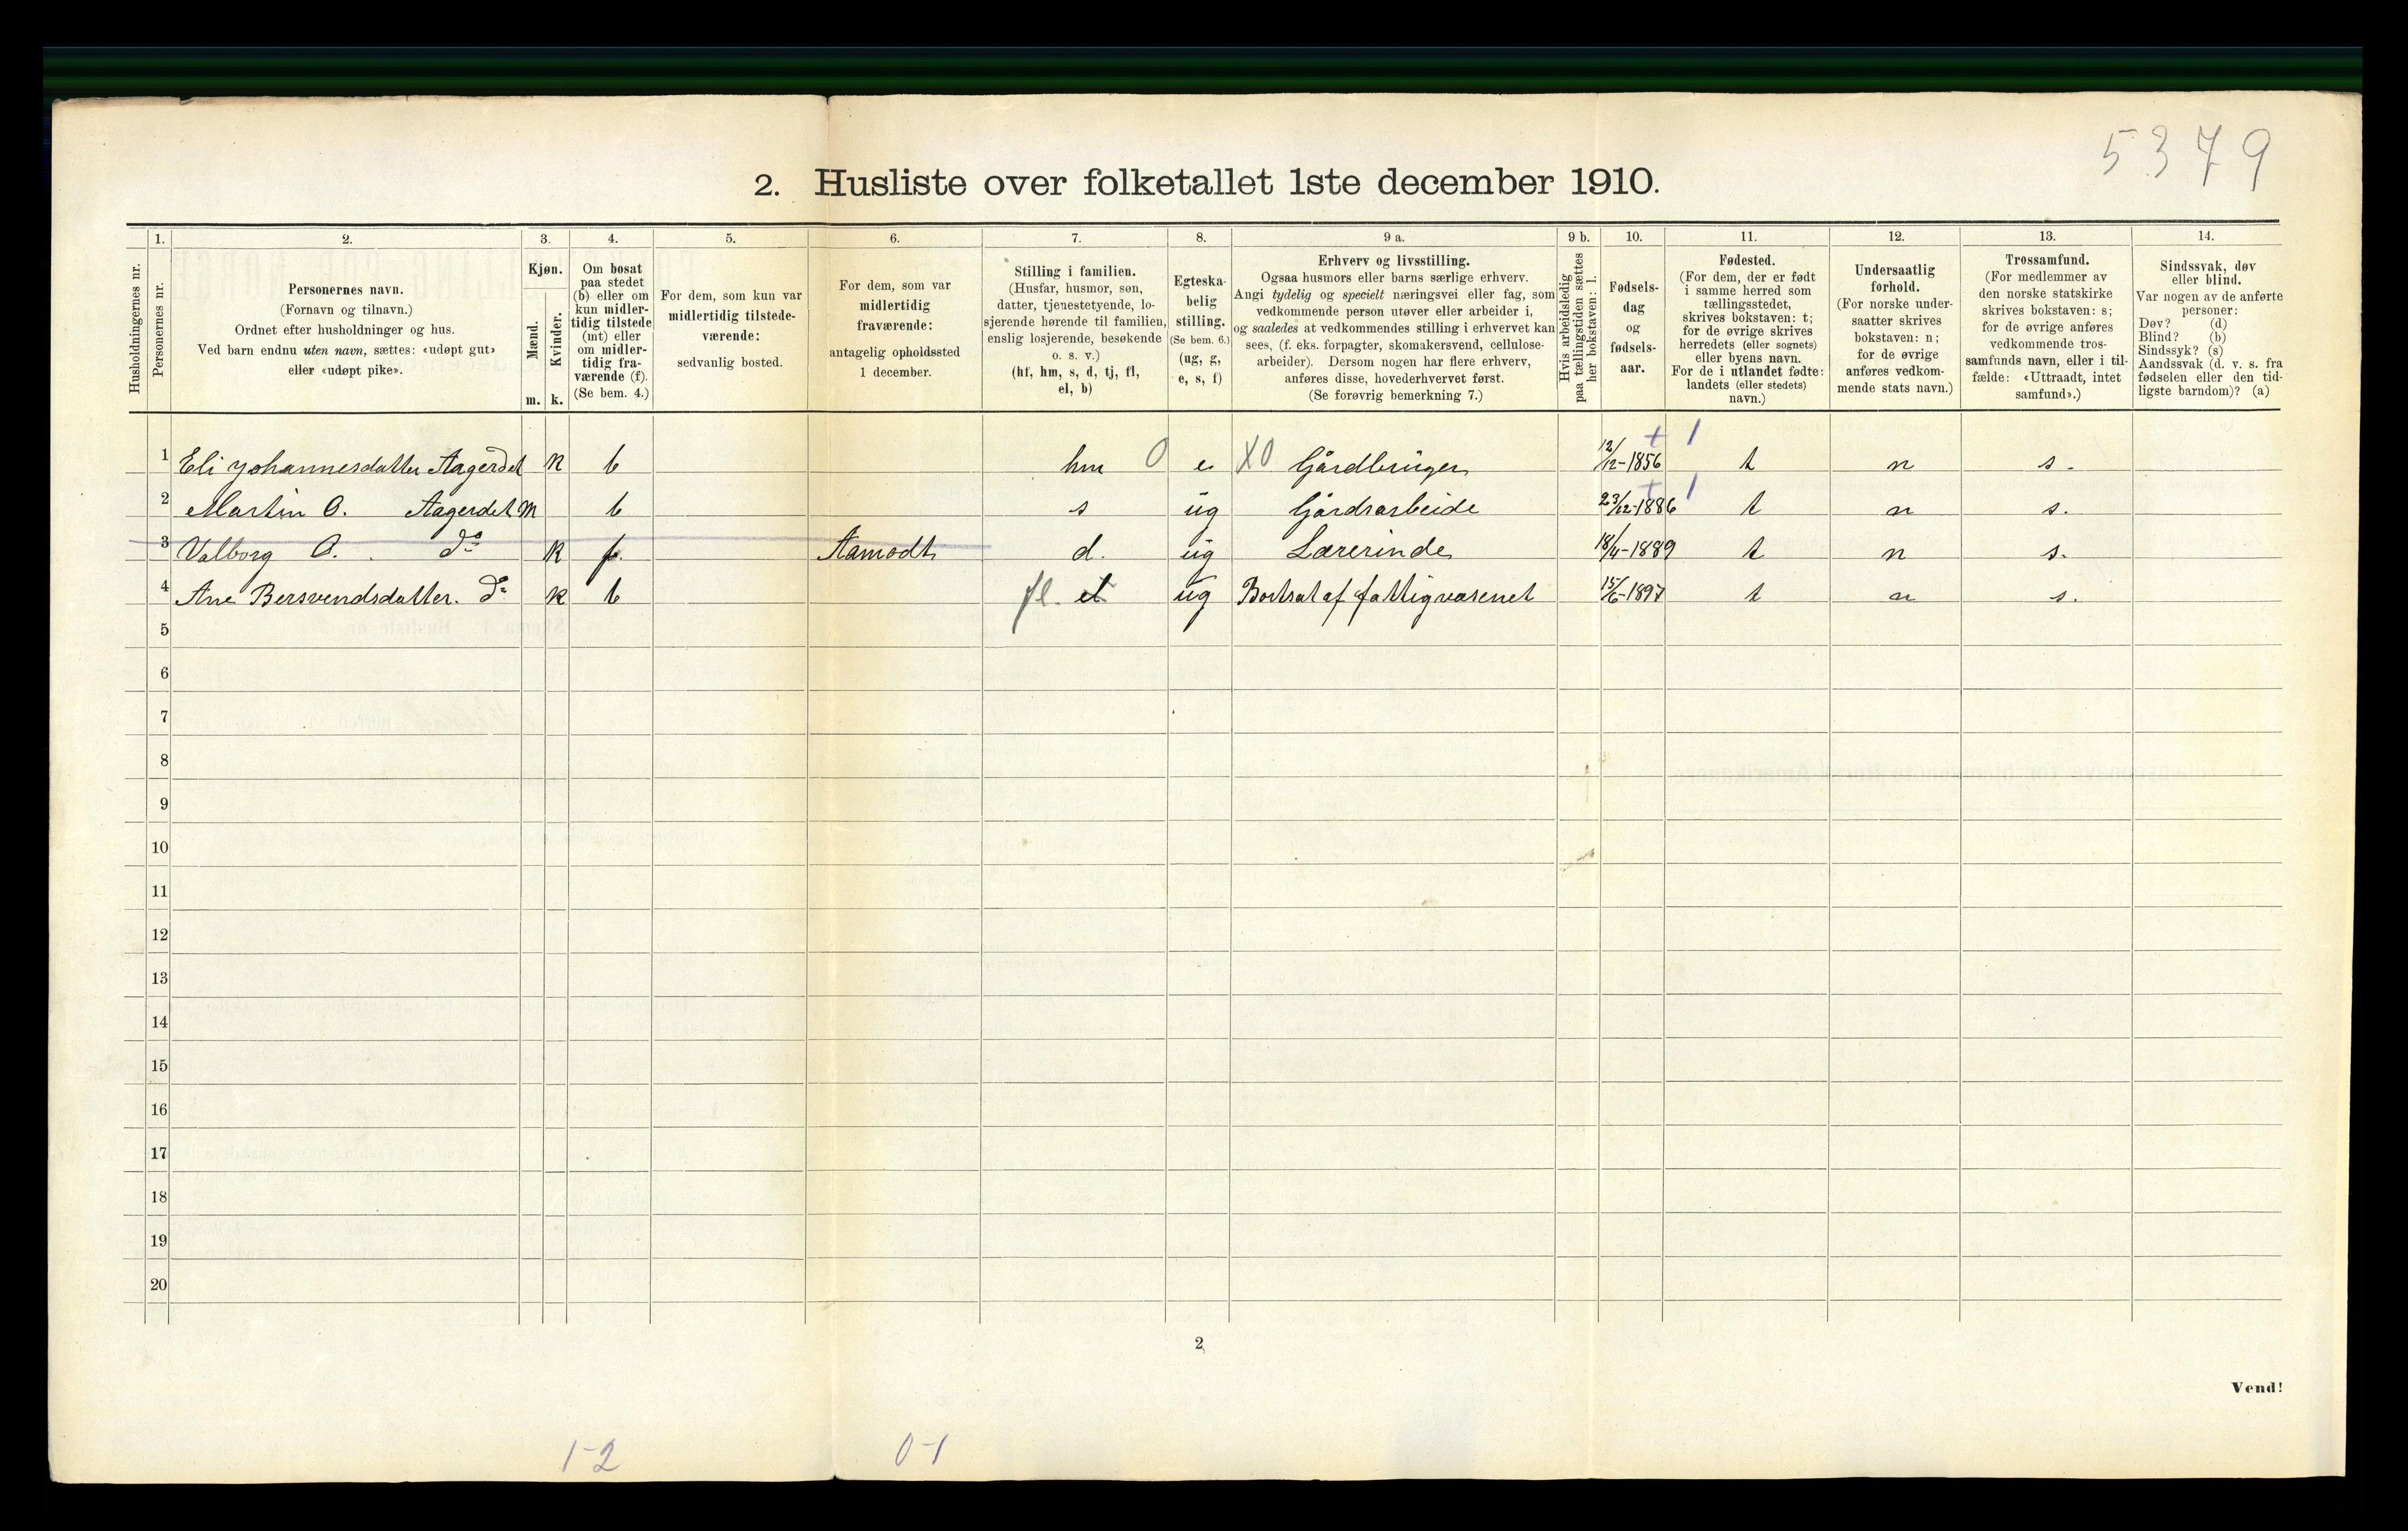 5379
2. Husliste over folketallet 1ste december 1910.
Husholdningernes nr.
1.
Personernes nr.
2.
Personernes navn.
(Fornavn og tilnavn.)
Ordnet efter husholdninger og hus.
Ved barn endnu uten navn, sættes: «udøpt gut»
eller «udøpt pike».
3.
Kjøn.
Mænd.
Kvinder.
m. k.
4.
Om bosat
paa stedet
(b) eller om
kun midler-
tidig tilstede
(mt) eller
om midler-
tidig fra-
værende (f).
(Se bem. 4.)
5.
For dem, som kun var
midlertidig tilstede-
værende:
sedvanlig bosted.
6.
For dem, som var
midlertidig
fraværende:
antagelig opholdssted
1 december.
7.
Stilling i familien.
(Husfar, husmor, søn,
datter, tjenestetyende, lo-
sjerende hørende til familien,
enslig losjerende, besøkende
o. s. v.)
(hf, hm, s, d, tj, fl,
el, b)
8.
Egteska-
belig
stilling.
(Se bem. 6.)
(ug, g,
e, s, f)
9 a.
Erhverv og livsstilling.
Ogsaa husmors eller barns særlige erhverv.
Angi tydelig og specielt næringsvei eller fag, som
vedkommende person utøver eller arbeider i,
og saaledes at vedkommendes stilling i erhvervet kan
sees, (f. eks. forpagter, skomakersvend, cellulose-
arbeider). Dersom nogen har flere erhverv,
anføres disse, hovederhvervet først.
(Se forøvrig bemerkning 7.)
9 b.
Hvis arbeidsledig
paa tællingstiden sættes
her bokstaven: l.
10.
Fødsels-
dag
og
fødsels-
aar.
11.
Fødested.
(For dem, der er født
i samme herred som
tællingsstedet,
skrives bokstaven: t;
for de øvrige skrives
herredets (eller sognets)
eller byens navn.
For de i utlandet fødte:
landets (eller stedets)
navn.)
12.
Undersaatlig
forhold.
(For norske under-
saatter skrives
bokstaven: n;
for de øvrige
anføres vedkom-
mende stats navn.)
13.
Trossamfund.
(For medlemmer av
den norske statskirke
skrives bokstaven: s;
for de øvrige anføres
vedkommende tros-
samfunds navn, eller i til-
fælde: «Uttraadt, intet
samfund».)
14.
Sindssvak, døv
eller blind.
Var nogen av de anførte
personer:
Døv? (d)
Blind? (b)
Sindssyk? (s)
Aandssvak (d. v. s. fra
fødselen eller den tid-
ligste barndom)? (a)
1 Eli Johannesdatter Aagerdet K b hm 0 e X0 Gårdbruger 12/12-1856 + 1 t n s.
2 Martin O. Aagerdet M b s ug Gårdsarbeide 23/12-1886 + 1 t n s.
3 Valborg O. do K f. Aamodt d. ug Lærerinde 18/4-1889 t n s.
4 Ane Bersvendsdatter. do K b fl. el ug Bortsat af fattigvæsenet 15/6-1897 t n s.
5
6
7
8
9
10
11
12
13
14
15
16
17
18
19
20
2
Vend!
1-2 0-1